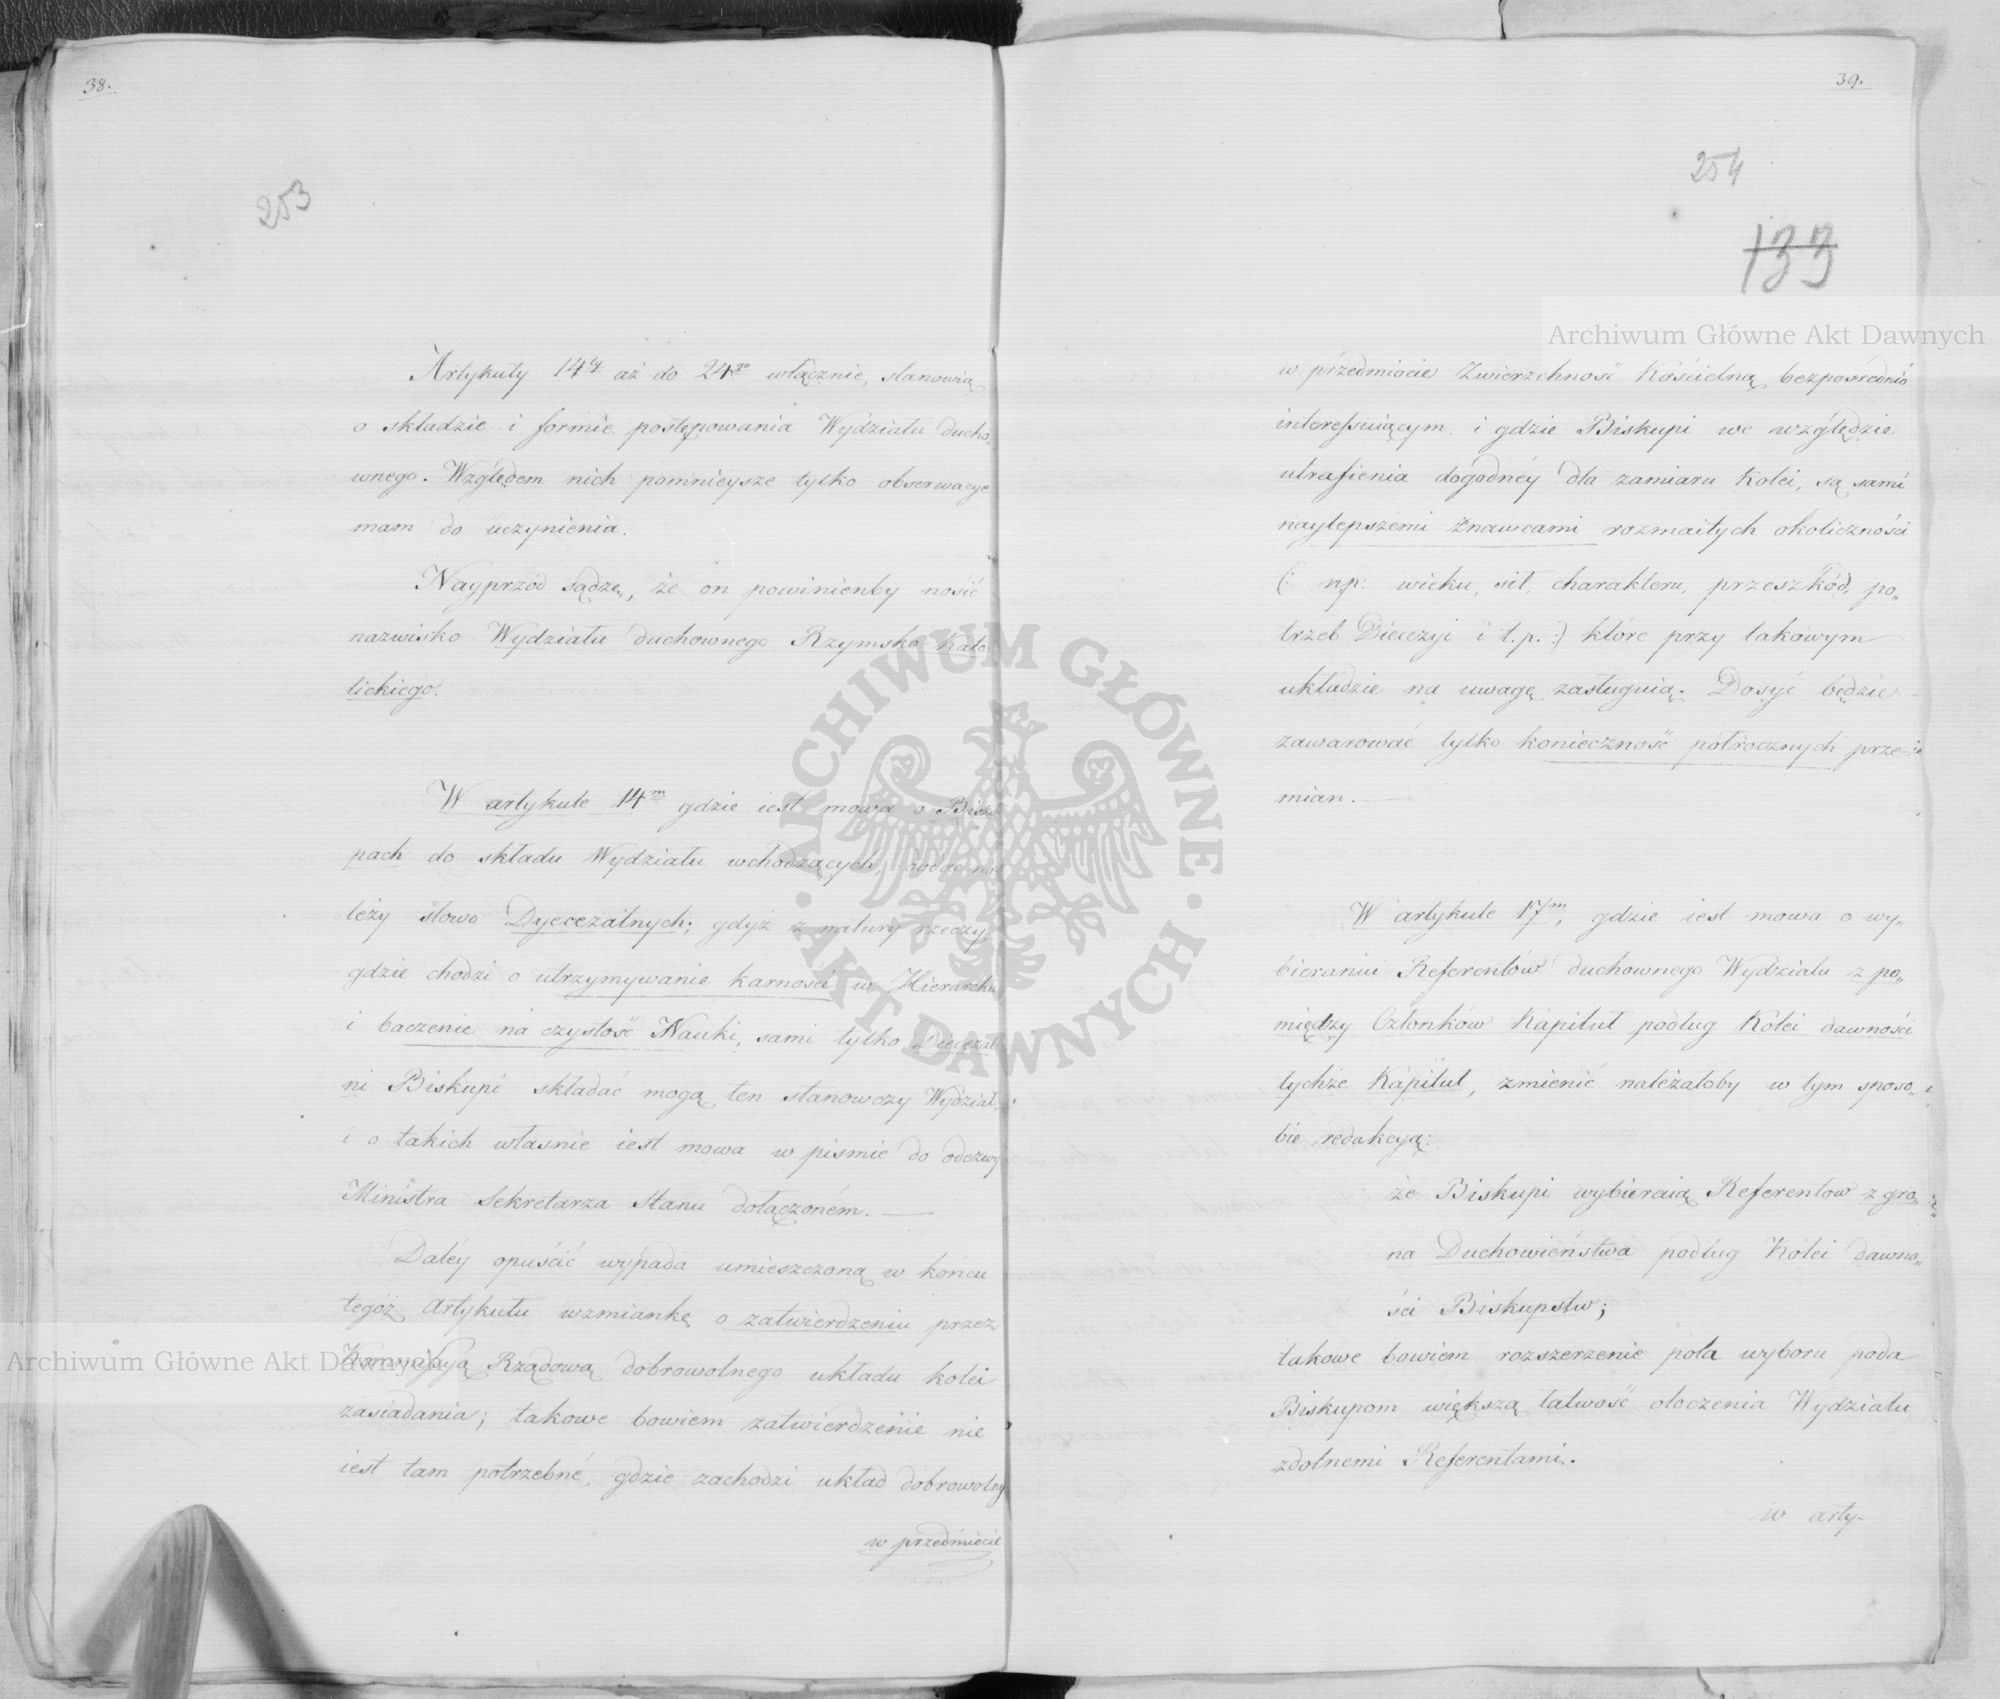 38.
253
Artykuły 14ty aż do 24go włącznie, stanowią
o składzie i formie postępowania Wydziału ducho„
wnego. Względem nich pomnieysze tylko obserwacye
mam do uczynienia.
Nayprzód sądzę, że on powinienby nosić
nazwisko Wydziału duchownego Rzymsko-Kato„
lickiego.
W artykule 14m gdzie iest mowa o Bisku„
pach do składu Wydziału wchodzących, dodać na„
leży słowo Dyecezalnych; gdyż z natury rzeczy,
gdzie chodzi o utrzymywanie karności w Hierarchii
i baczenie na czystość Nauki, sami tylko Diecezal„
ni Biskupi składać mogą ten stanowczy Wydział,
i o takich własnie iest mowa w pismie do odezwy
Ministra Sekretarza Stanu dołączoném. —
Daléy opuścić wypada umieszczoną w końcu
tegóż Artykułu wzmiankę o zatwierdzeniu przez
Kommissyą Rządową dobrowolnego układu kolei
zasiadania; takowe bowiem zatwierdzenie nie
iest tam potrzebne, gdzie zachodzi układ dobrowolny
w przedmiocie
39.
254
133
w przedmiocie Zwierzchność Kościelną bezpośrednio
interessuiącym, i gdzie Biskupi we względzie
utrafienia dogodnéy dla zamiaru Kolei, są sami
naylepszemi znawcami rozmaitych okoliczności
(: np: wieku, sił, charakteru, przeszkód, po„
trzeb Diecezyi i t.p. :) które przy takowym
układzie na uwagę zasługuią. Dosyć będzie
zawarować tylko konieczność półrocznych prze„
mian. —
W artykule 17m, gdzie iest mowa o wy„
bieraniu Referentów duchownego Wydziału z po„
między Członków Kapituł podług Kolei dawności
tychże Kapituł, zmienić należałoby w tym sposo„
bie redakcyą:
że Biskupi wybieraią Referentow z gro„
na Duchowieństwa podług Kolei dawno„
ści Biskupstw;
takowe bowiem rozszerzenie pola wyboru poda
Biskupom większą łatwość otoczenia Wydziału
zdolnemi Referentami.
w arty=
Archiwum Główne Akt Dawnych
Archiwum Główne Akt Dawnych
ARCHIWUM GŁÓWNE · AKT DAWNYCH ·